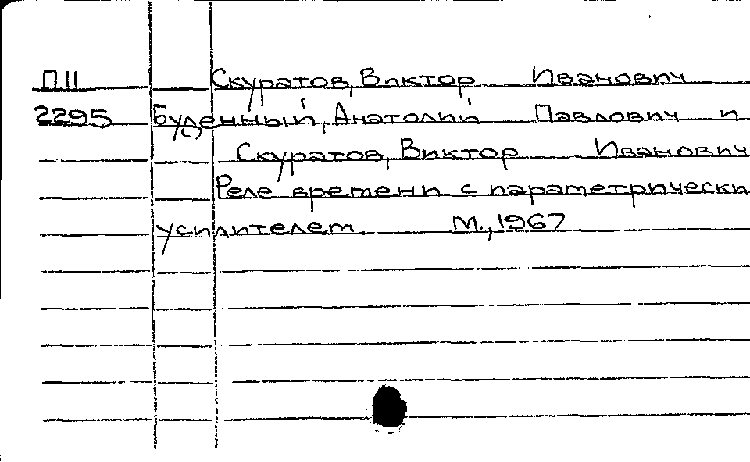 П11 Скуратов, Виктор Иванович
2295 Буденный, Анатолий Павлович и
Скуратов, Виктор Иванович
Реле времени с параметрически
усилителем. М., 1967